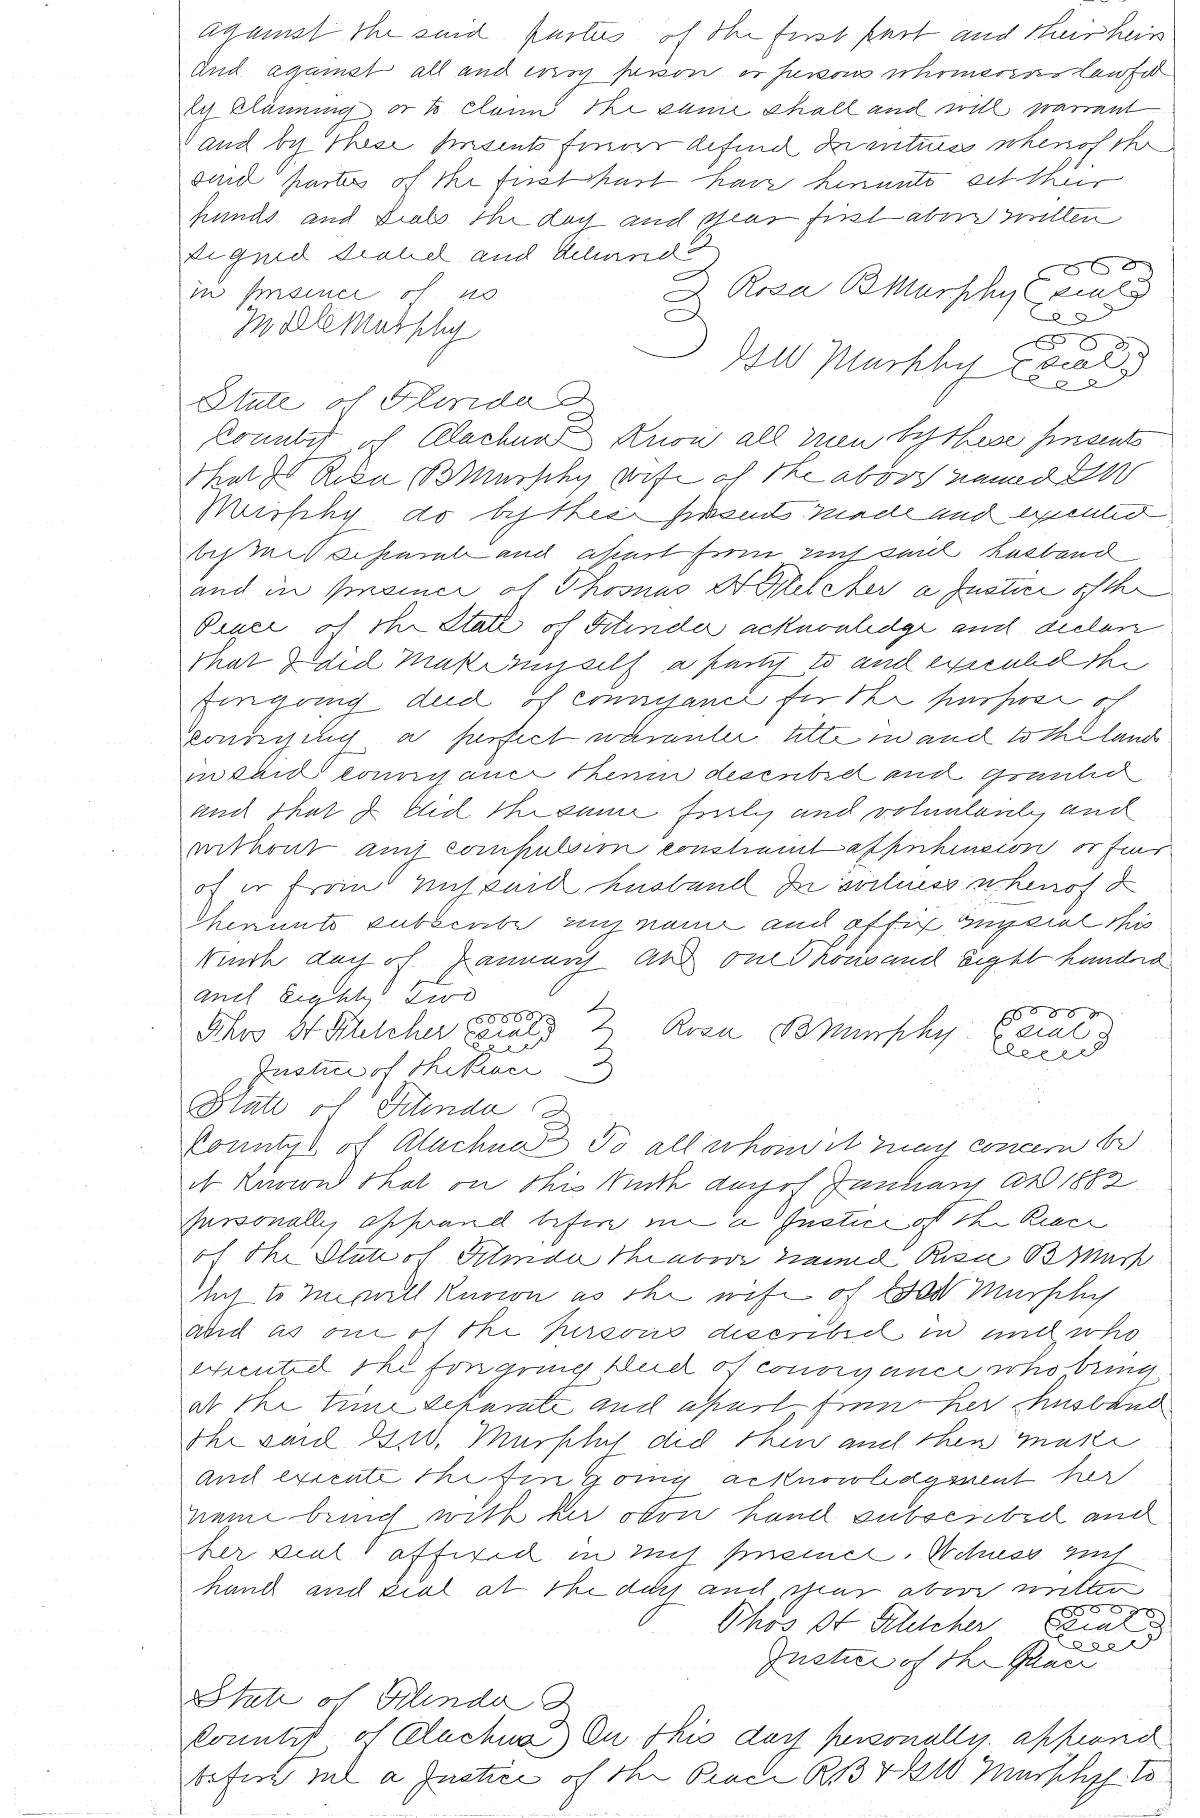 against the said parties of the first part and their heirs
and against all and every person or persons whomsoever lawful
ly claiming or to claim the same shall and will warrant
and by these presents forever defend In witness whereof the
said parties of the first part have hereunto set their
hands and seals the day and year first above written
Signed sealed and delivered
in presence of us
Rosa B Murphy seal
Murphy
G W Murphy seal
State of Florida
County of Alachua Know all men by these presents
that I Rosa B Murphy wife of the above named G W
Murphy do by these presents made and executed
by me separate and apart from my said husband
and in presence of Thomas H Fletcher a Justice of the
Peace of the State of Florida acknowledge and declare
that I did make myself a party to and executed the
foregoing deed of conveyance for the purpose of
conveying a perfect warantee title in and to the land
in said conveyance therein described and granted
and that I did the same freely and voluntarily and
without any compulsion constraint apprehension or fear
of or from my said husband In witness whereof I
hereunto subscribe my name and affix my seal this
Ninth day of January AD one Thousand Eight hundred
and Eighty Two
Thos H Fletcher seal Rosa B Murphy seal
Justice of the Peace
State of Florida
County of Alachua To all whom it may concern be
it Known that on this Ninth day of January AD 1882
personally appeared before me a Justice of the Peace
of the State of Florida the above named Rosa B Murp
hy to me well Known as the wife of G W Murphy
and as one of the persons described in and who
executed the foregoing Deed of conveyance who being
at the time separate and apart from her husband
the said G.W. Murphy did then and then make
and execute the foregoing acknowledgment her
name being with her own hand subscribed and
her seal affixed in my presence. Witness my
hand and seal at the day and year above written
Thos H Fletcher seal
Justice of the Peace
State of Florida
County of Alachua On this day personally appeared
before me a Justice of the Peace R B & G W Murphy to